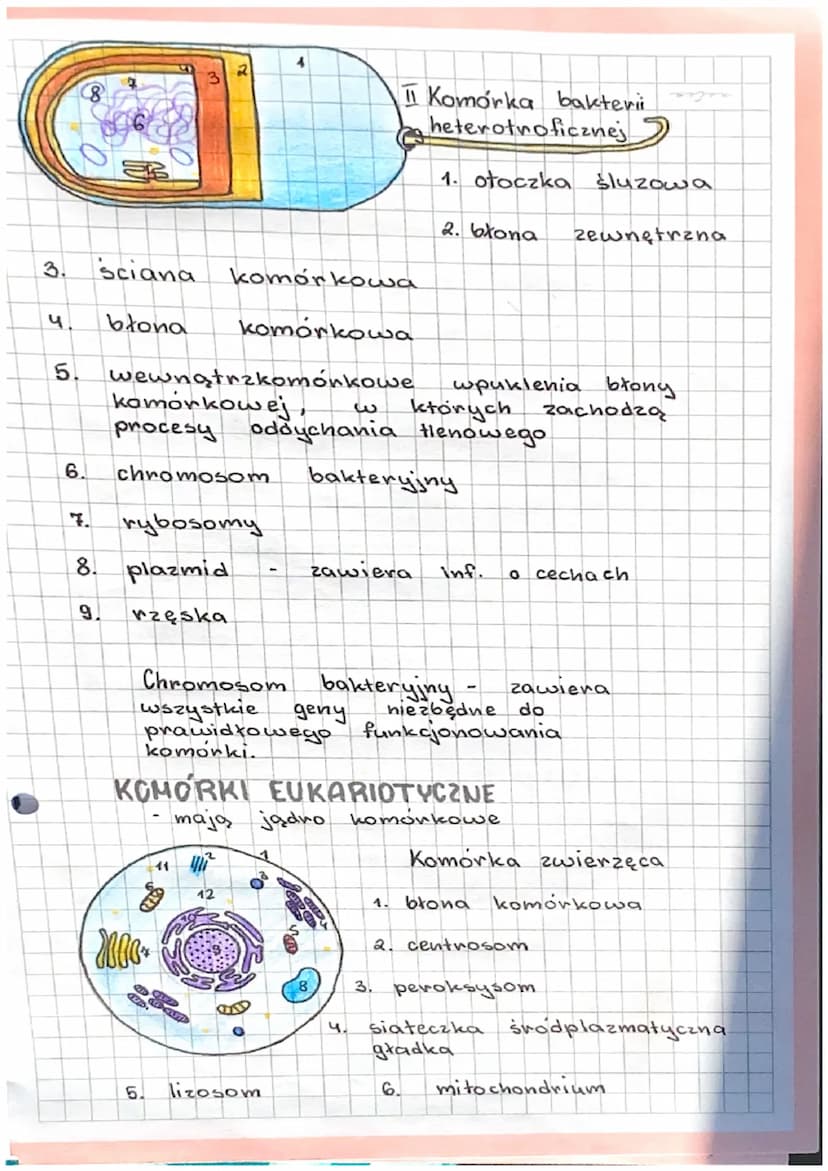 II Komórka bakterii
heterotroficznej
1. otoczka śluzowa
2. błona zewnętrzna
3. ściana komórkowa
4. błona komórkowa
5. wewnątrzkomórkowe wpuklenia błony
komórkowej, w których zachodzą
procesy oddychania tlenowego
6. chromosom bakteryjny
7. rybosomy
8. plazmid - zawiera inf. o cechach
9. rzęska
Chromosom bakteryjny - zawiera
wszystkie geny niezbędne do
prawidłowego funkcjonowania
komórki.
KOMÓRKI EUKARIOTYCZNE
- mają jądro komórkowe
Komórka zwierzęca
1. błona komórkowa
2. centrosom
3. peroksysom
4. siateczka śródplazmatyczna
gładka
5. lizosom 6. mitochondrium
8 7 4 3 2 1
6
11 2 1
6 12 3
10 4
5
7 9
8